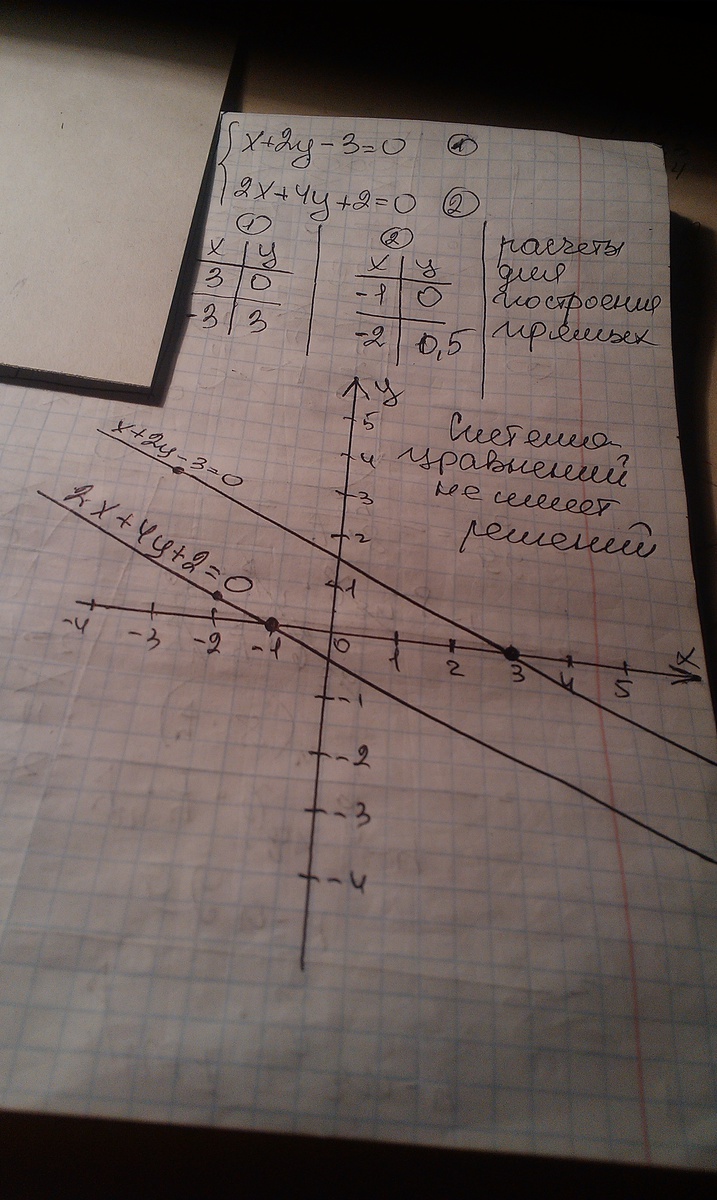 x+2y-3=0 ①
2x+4y+2=0 ②
① ②
x y x y расчеты
3 0 -1 0 для
-3 3 -2 0,5 построения
прямых
y
5
4
3
2
1
x+2y-3=0
2x+4y+2=0
Система
уравнений
не имеет
решений
-4 -3 -2 -1 0 1 2 3 4 5 x
-1
-2
-3
-4